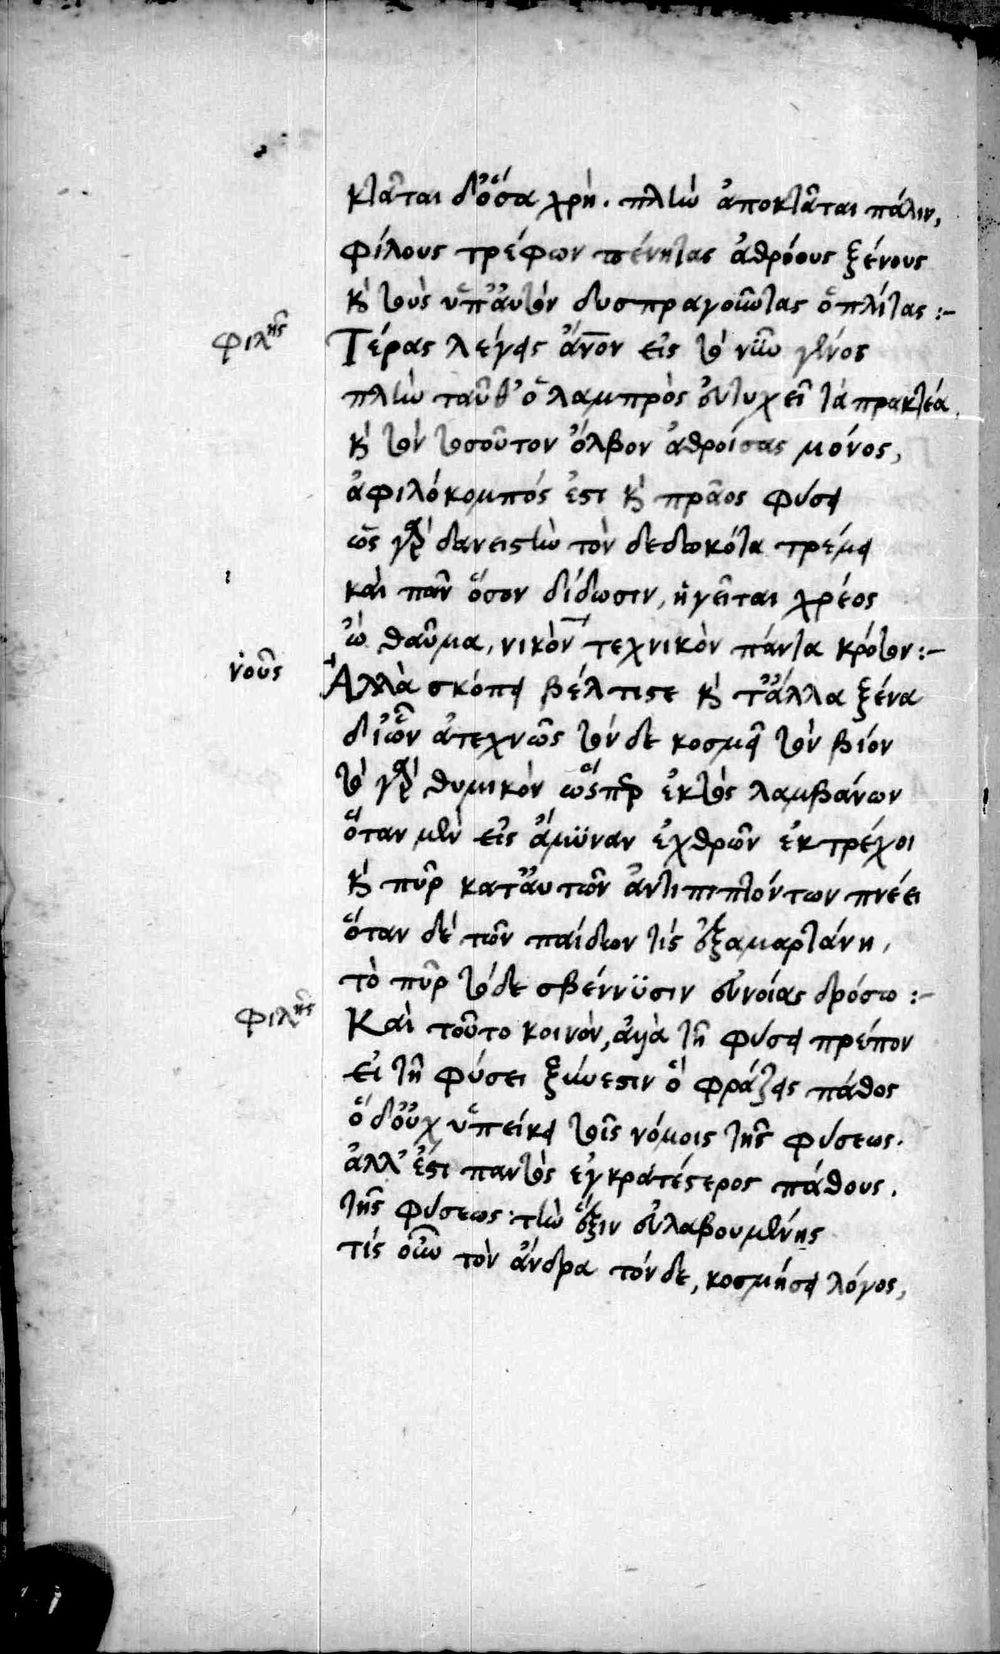 κτᾶται δ' ὅσα χρή. πλὴν ἀποκτᾶται πάλιν,
φίλους τρέφων πένητας ἀθρόους ξένους
κ τοὺς ὑπ' αὐτὸν δυσπραγοῦντας ὁπλίτας :-
Φιλῆς Τέρας λέγεις ἄνον εἰς τὸ νῦν γένος
πλὴν ταῦθ' ὁ λαμπρὸς εὐτυχεῖ τὰ πρακτέα,
κ τὸν τοσοῦτον ὄλβον ἀθροίσας μόνος,
ἀφιλόκομπός ἐστι κ πρᾶος φύσει
ὡς γὰρ δανειστὴν τὸν δεδωκότα τρέμει
καὶ πᾶν ὅσον δίδωσιν, ἡγεῖται χρέος
ὢ θαῦμα, νικὸν τεχνικὸν πάντα κρότον :-
νοῦς Ἀλλὰ σκόπει βέλτιστε κ τἄλλα ξένα
δι' ὧν ἀτεχνῶς τόνδε κοσμεῖ τὸν βίον
τὸ γὰρ θυμικὸν ὥσπερ ἐκτὸς λαμβάνων
ὅταν μὲν εἰς ἄμϋναν ἐχθρῶν ἐκτρέχοι
κ πῦρ κατ' αὐτῶν ἀντιπιπτόντων πνέει
ὅταν δέ τῶν παίδων τίς ἐξαμαρτάνη,
τὸ πῦρ τόδε σβέννϋσιν εὐνοίας δρόσω :-
Φιλῆς Καὶ τοῦτο κοινὸν, ἀλλὰ τῇ φύσει πρέπον
εἰ τῇ φύσει ξύνεστιν ὃ φράζεις πάθος
ὁ δ' οὐχ ὑπείκει τοῖς νόμοις τῆς φύσεως.
ἀλλ' ἔστι παντὸς ἐγκρατέστερος πάθους.
τῆς φύσεως τὴν ἕξιν εὐλαβουμένης
τίς οὖν τὸν ἄνδρα τόνδε, κοσμήσει λόγος,